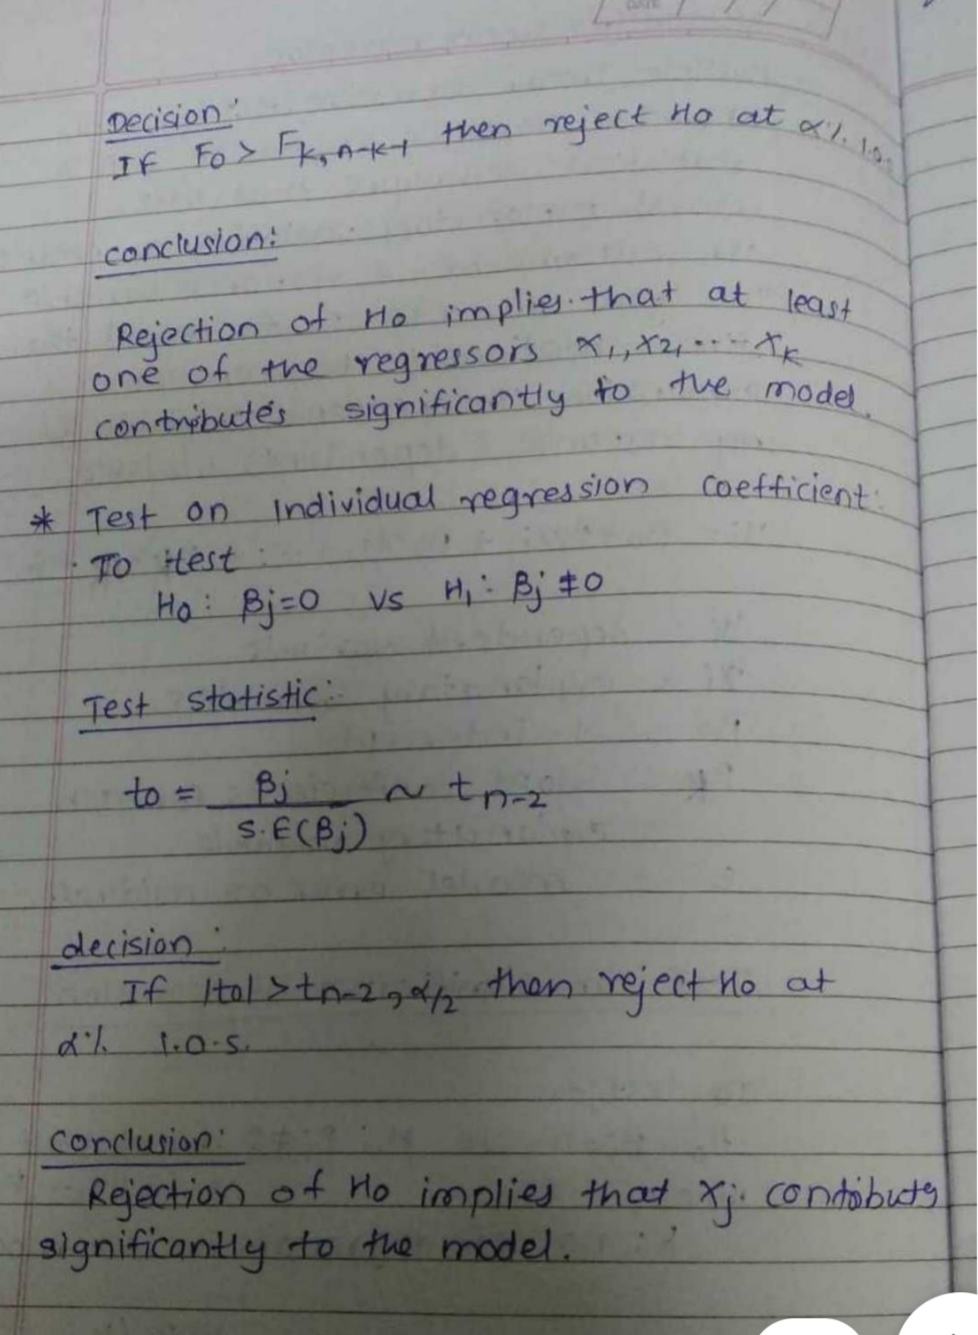 DATE
Decision:
If F0 > Fk,n-k-1 then reject H0 at α% l.o.
conclusion:
Rejection of H0 implies that at least
one of the regressors x1, x2, ... xk
contributes significantly to the model.
* Test on individual regression coefficient:
To test:
H0: βj=0 vs H1: βj ≠0
Test statistic:
t0 = βj / S.E(βj) ~ tn-2
decision:
If |t0| > tn-2, α/2 then reject H0 at
α% l.o.s.
conclusion:
Rejection of H0 implies that xj contributs
significantly to the model.